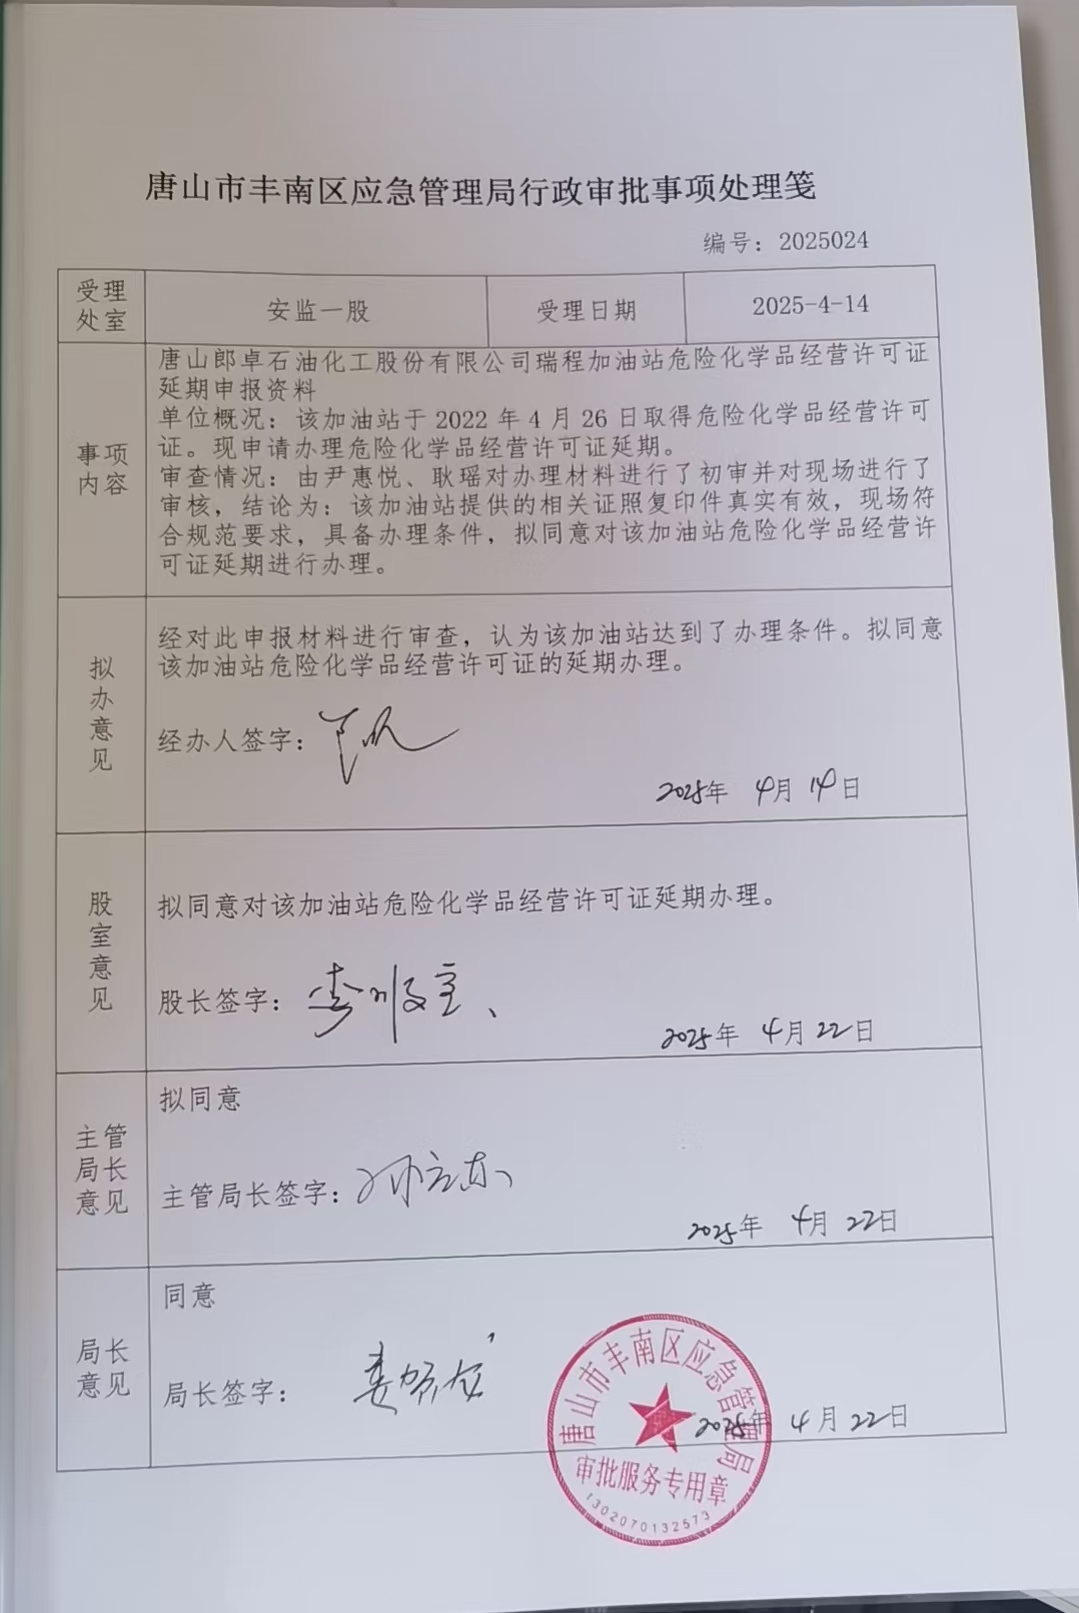 唐山市丰南区应急管理局行政审批事项处理笺
编号：2025024
受理处室
安监一股
受理日期
2025-4-14
事项内容
唐山郎卓石油化工股份有限公司瑞程加油站危险化学品经营许可证
延期申报资料
单位概况：该加油站于 2022 年 4 月 26 日取得危险化学品经营许可
证。现申请办理危险化学品经营许可证延期。
审查情况：由尹惠悦、耿瑶对办理材料进行了初审并对现场进行了
审核，结论为：该加油站提供的相关证照复印件真实有效，现场符
合规范要求，具备办理条件，拟同意对该加油站危险化学品经营许
可证延期进行办理。
拟办意见
经对此申报材料进行审查，认为该加油站达到了办理条件。拟同意
该加油站危险化学品经营许可证的延期办理。
经办人签字：
2025年 4月 14日
股室意见
拟同意对该加油站危险化学品经营许可证延期办理。
股长签字：李顺宝
2025年 4月 22日
主管局长意见
拟同意
主管局长签字：孙立东
2025年 4月 22日
局长意见
同意
局长签字：
2025年 4月 22日
唐山市丰南区应急管理局
审批服务专用章
1302070132573